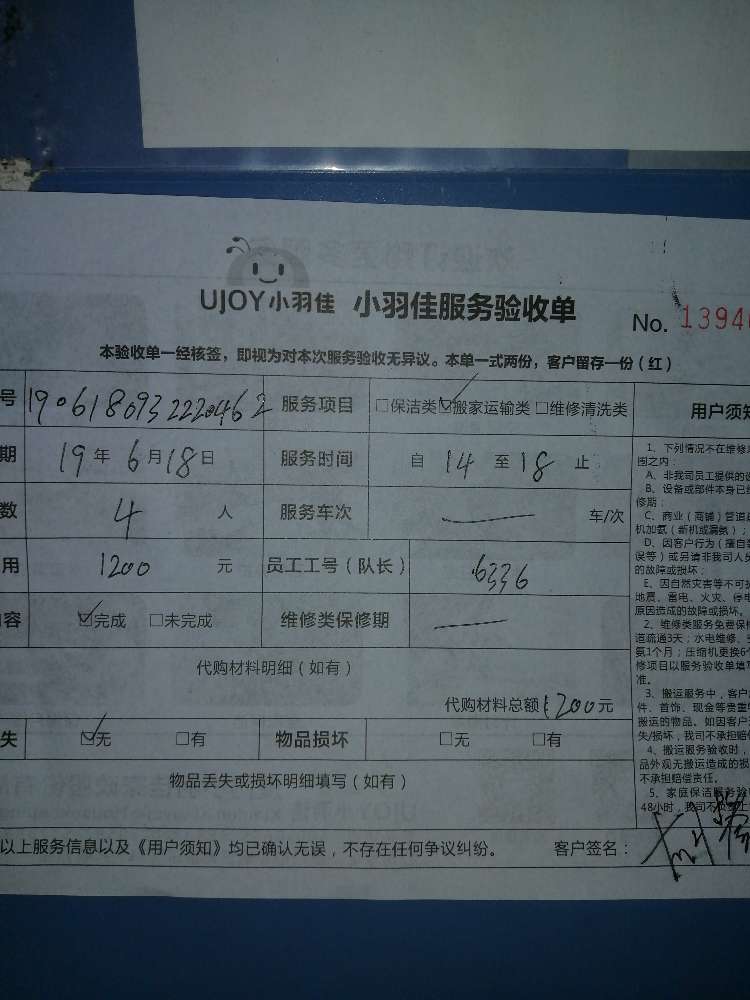 UJOY小羽佳 小羽佳服务验收单 No. 13940
本验收单一经核签，即视为对本次服务验收无异议。本单一式两份，客户留存一份（红）
号 1906180932220462 服务项目 □保洁类 ☑搬家运输类 □维修清洗类
期 19年6月18日 服务时间 自 14 至 18 止
数 4 人 服务车次 车/次
用 1200 元 员工工号（队长） 6336
容 ☑完成 □未完成 维修类保修期
代购材料明细（如有）
代购材料总额 1200元
失 ☑无 □有 物品损坏 □无 □有
物品丢失或损坏明细填写（如有）
以上服务信息以及《用户须知》均已确认无误，不存在任何争议纠纷。 客户签名：
用户须知
1、下列情况不在维修
围之内：
A、非我司员工提供的
B、设备或部件本身已
修期；
C、商业（商铺）管道
机加氨（新机或漏氨）；
D、因客户行为（擅自
误等）或另请非我司人
的故障或损坏；
E、因自然灾害等不可
地震、雷电、火灾、停电
原因造成的故障或损坏。
2、维修类服务免费保
道疏通3天；水电维修、
氨1个月；压缩机更换6
修项目以服务验收单填
准。
3、搬运服务中，客户
件、首饰、现金等贵重
搬运的物品。如因客户
失/损坏，我司不承担赔
4、搬运服务验收时，
品外观无搬运造成的损
不承担赔偿责任。
5、家庭保洁服务验
48小时，我司不